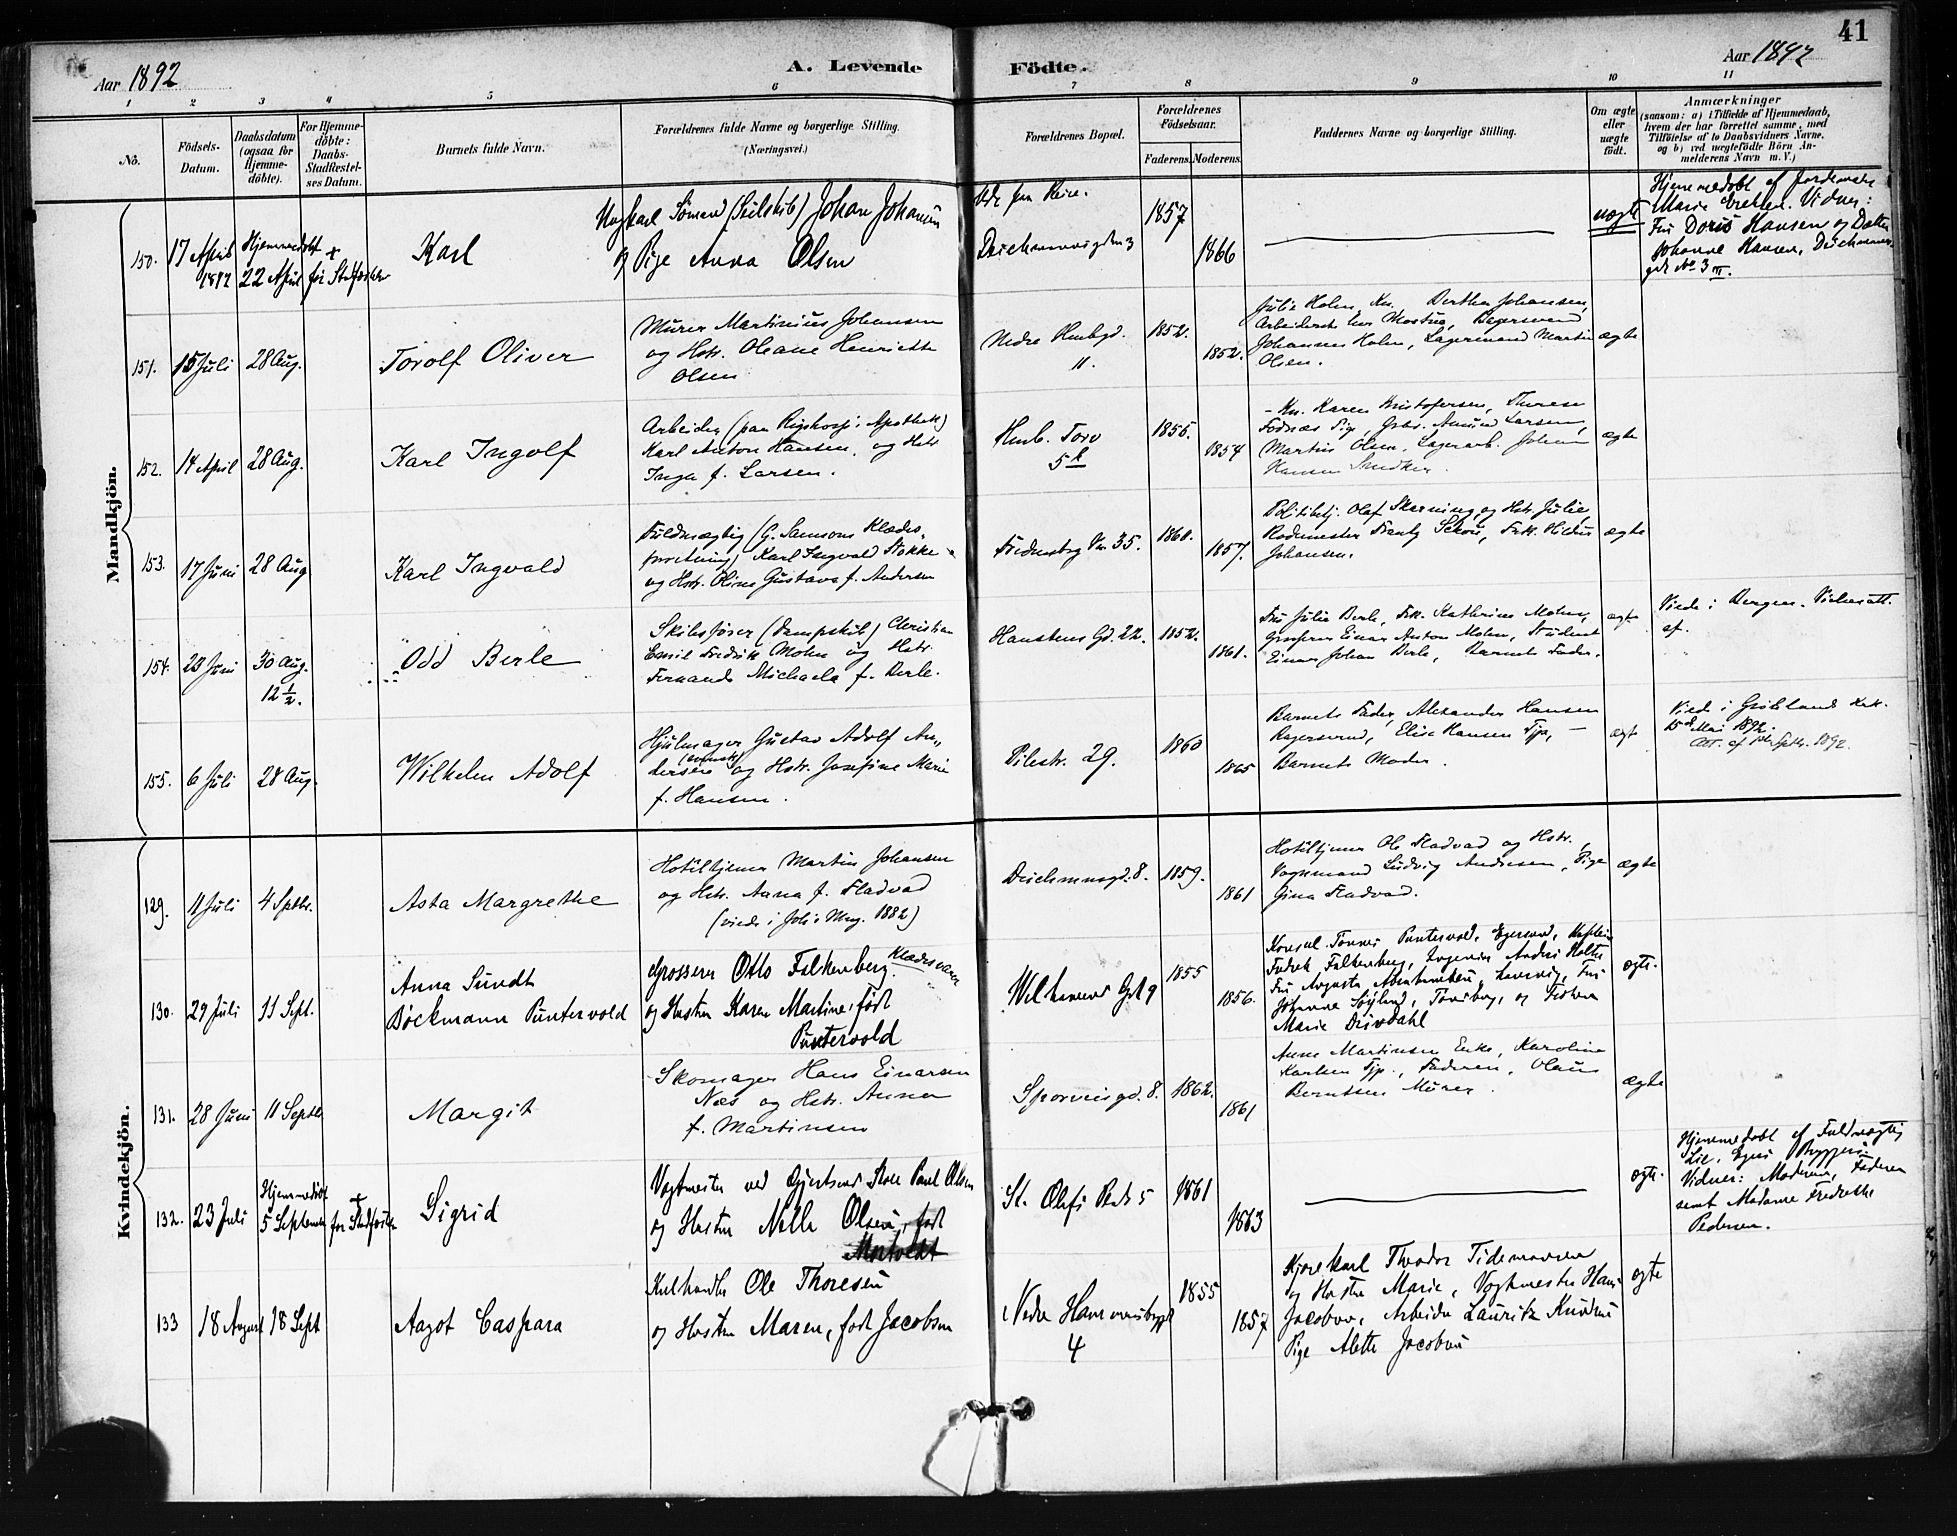 41
Aar 1892
A. Levende Födte.
Aar 1892
1 2 3 4 5 6 7 8 9 10 11
No.
Födsels-
Datum.
Daabsdatum
(ogsaa for
Hjemme-
döbte).
For Hjemme-
döbte:
Daabs-
Stadfæstel-
ses Datum.
Barnets fulde Navn.
Forældrenes fulde Navne og borgerlige Stilling.
(Næringsvei.)
Forældrenes Bopæl.
Forældrenes
Födselsaar.
Faderens. Moderens.
Faddernes Navne og borgerlige Stilling.
Om ægte
eller
uægte
födt.
Anmærkninger
(saasom: a) i Tilfælde af Hjemmedaab,
hvem der har forrettet samme, med
Tilföielse af to Daabsvidners Navne,
og b) ved uægtefödte Börn An-
melderens Navn m. V.)
Mandkjön.
150. 17 April 1892
Hjemmedøbt
22 April
Karl
Sømand (Seilskib) Johan Johansen
og Pige Anna Olsen
1857
1866
uægte
Marie Vidner:
Fru Doris Hansen og Datter
Johanne Hansen,
No 3 III.
151. 15 Juli 28 Aug.
Torolf Oliver
Murer Martinius Johansen
og Hstr. Oleane Henriette
Olsen
11.
1852.
1852.
Johannes Holm, Lagermand Martin
Olsen.
ægte
152. 14 April 28 Aug.
Karl Ingolf
Arbeider (paa Rigshosp. Apothek)
Karl Anton Hansen, og Hstr
Inga f. Larsen.
Hmb. Torv
5
1856.
1854
Kn. Karen Kristofersen, Therese
Martin Olsen, Lagerarb. Johan
Hansen Snedker.
ægte
153. 17 Juni 28 Aug
Karl Ingvald
Fuldmægtig (G. Samsons Klædes-
forretning) Karl Ingvald Stokke
og Hstr. Oline Gustava f. Andersen
Fredensborg Vn 35.
1860.
1857.
Politibetj. Olaf Skarning og Hstr. Julie,
Rodemester Frantz Schou, Frk. Hildur
Johansen.
ægte
154. 23 Juni 30 Aug.
12 1/2.
Odd Berle
Skibsfører (Dampskib) Christian
Emil Fredrik Mohn og Hstr.
Fernanda Michaela f. Berle.
Hanstens Gd. 22.
1852.
1861.
Fru Julie Berle, Frk. Kathrine Mohn,
Einar Anton Mohn, Student
Einar Johan Berle, Barnets Fader.
ægte
Viede i Bergen. Vielsesatt.
af.
155. 6 Juli 28 Aug.
Wilhelm Adolf
Hjulmager Gustav Adolf An-
(svensk)
dersen og Hstr. Josefine Marie
f. Hansen.
Pilestr. 29.
1860
1865
Barnets Fader, Alexander Hansen
Bagersvend, Elise Hansen Tjp,
Barnets Moder.
ægte
Viede i Grønland Kirke.
15de Mai 1892.
Kvindekjön.
129. 11 Juli 4 Septbr.
Asta Margrethe
Hotiltjener Martin Johansen
og Hstr. Anna f. Fladvad
(viede i Joh's Mng. 1882)
Deichmansgd. 8.
1859.
1861
Hotiltjener Ole Fladvad og Hstr.,
Vognmand Ludvig Andresen, Pige
Gina Fladvad.
ægte
130. 29 Juli 11 Sept.
Anna Sundt
Bøckmann Puntervold
Grosserer Otto Falkenberg. Klædesvarer
og Hustru Karen Martine, født
Puntervold
Wilhelmsens Gd 9
1855
1856.
Konsul Tønnes Puntervold, Egersund, Kaptein
Fredrik Falkenberg, Ingeniør Andrew Holter
Fru Augusta
Johanne Tønsberg, og Frøken
Marie Drivdahl
ægte.
131. 28 Juni 11 Septbr
Margit
Skomager Hans Einarsen
Næs og Hstr. Anna
f. Martinsen
Sporveisgd. 8.
1862.
1861
Anne Martinsen Enke, Karoline
Karlsen Tjp., Faderen, Olaus
Berntsen Murer.
ægte
132. 23 Juli
Hjemmedøbt
5 September
Sigrid
Vogtmester ved Gjertsens Skole Paul Olsen
og Hustru Nella Olsen, født
St. Olafs Plads 5
1861
1863
ægte.
Hjemmedøbt af Fuldmægtig
Lie, Bryggeri
Vidner: Moderen, Faderen
samt Madame Fredrikke
Pedersen.
133 18 August 18 Sept
Aagot Caspara
Kulhandler Ole Thoresen
og Hustru Maren, født Jacobsen
Nedre Hammersborggd
4
1855
1857
Kjørekarl Theodor Tidemansen
og Hustru Marie, Vognmester Hans
Jacobsen, Arbeider Lauritz Knudsen
Pige Alette Jacobsen
ægte